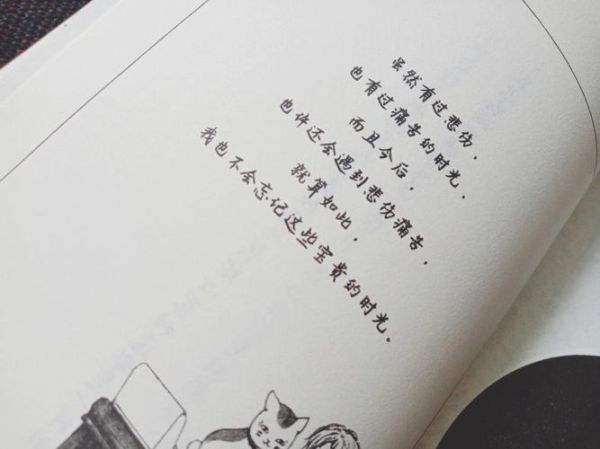 虽然有过悲伤，
也有过痛苦的时光，
而且今后，
也许还会遇到悲伤痛苦，
就算如此，
我也不会忘记这些宝贵的时光。